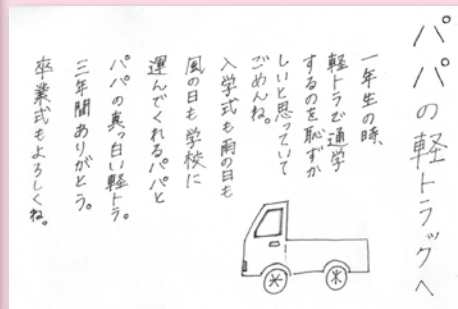 パパの軽トラックへ
一年生の時、
軽トラで通学
するのを恥ずか
しいと思っていて
ごめんね。
入学式も雨の日も
風の日も学校に
運んでくれるパパと
パパの真っ白い軽トラ。
三年間ありがとう。
卒業式もよろしくね。